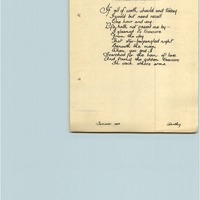 If all of wealth should end today
I would but need recall
One hour and say
Life hath not passed me by—
I gleaned its treasure
From the sky
But star-bespangled night
Beneath the moon
When you and I
Searched for the hour of love
And found the golden treasure
In each others arms